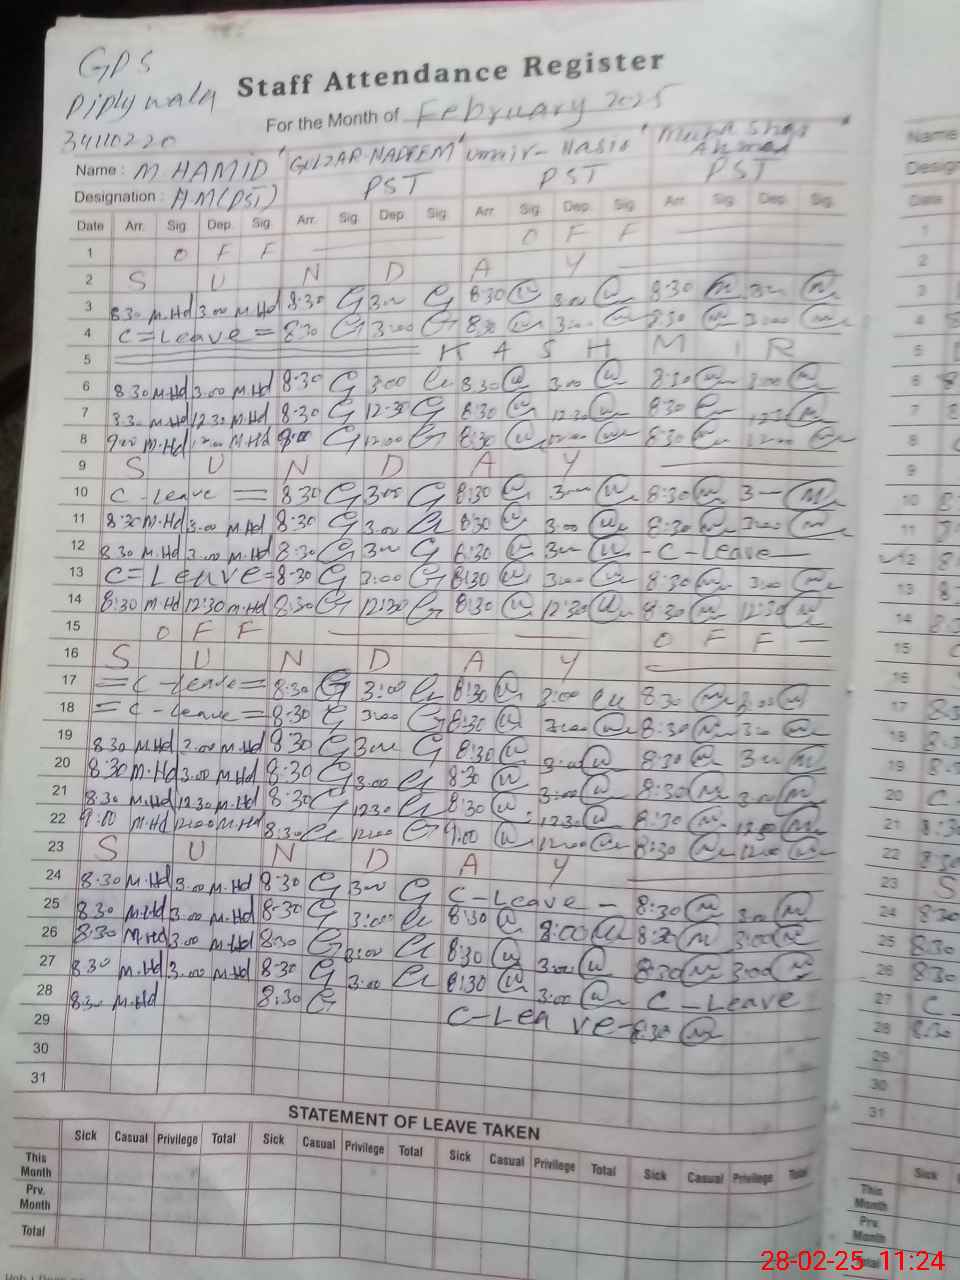 GPS
Piplywala
34110220
Staff Attendance Register
For the Month of February 2025
Name : M HAMID GULZAR NADEEM Umair- Nasir Ahmed
Designation : H.M(PST) PST PST PST
Date Arr. Sig. Dep. Sig. Arr. Sig. Dep. Sig. Arr Sig. Dep. Sig. Arr. Sig. Dep. Sig.
1 O F F O F F
2 S U N D A Y
3 8.30 M.Hd 3.00 M.Hd 8:30 G 3:00 G 8:30 3:00 8:30 3:00
4 C=Leave = 8:30 G 3:00 G 8:30 3:00 8:30 3:00
5 K A S H M I R
6 8.30 M.Hd 3.00 M.Hd 8:30 G 3:00 8:30 3:00 8:30 3:00
7 8.30 M.Hd 12.30 M.Hd 8:30 G 12:30 G 8:30 12:30 8:30 12:30
8 9:00 M.Hd 12:00 M.Hd 9:00 G 12:00 G 8:30 12:00 8:30 12:00
9 S U N D A Y
10 C-Leave = 8:30 G 3:00 G 8:30 3:00 8:30 3:00
11 8:30 M.Hd 3.00 M.Hd 8:30 G 3:00 G 8:30 3:00 8:30 3:00
12 8.30 M.Hd 3.00 M.Hd 8:30 G 3:00 G 8:30 3:00 -C-Leave
13 C=Leave= 8:30 G 3:00 G 8:30 3:00 8:30 3:00
14 8:30 M.Hd 12:30 M.Hd 8:30 G 12:30 G 8:30 12:30 8:30 12:30
15 O F F O F F
16 S U N D A Y
17 =C-Leave= 8:30 G 3:00 8:30 3:00 8:30 3:00
18 =C-Leave= 8:30 G 3:00 G 8:30 3:00 8:30 3:00
19 8.30 M.Hd 3.00 M.Hd 8:30 G 3:00 G 8:30 3:00 8:30 3:00
20 8:30 M.Hd 3.00 M.Hd 8:30 G 3:00 8:30 3:00 8:30 3:00
21 8.30 M.Hd 12.30 M.Hd 8:30 G 12:30 8:30 12:30 8:30 12:30
22 9:00 M.Hd 12:00 M.Hd 8:30 12:00 G 9:00 12:00 8:30 12:00
23 S U N D A Y
24 8.30 M.Hd 3.00 M.Hd 8:30 G 3:00 G C-Leave - 8:30 3:00
25 8.30 M.Hd 3.00 M.Hd 8:30 G 3:00 8:30 8:00 8:30 3:00
26 8:30 M.Hd 3.00 M.Hd 8:30 G 3:00 8:30 3:00 8:30 3:00
27 8.30 M.Hd 3.00 M.Hd 8:30 G 3:00 8:30 3:00 C-Leave
28 8:30 M.Hd 8:30 G C-Leave- 8:30
29
30
31
STATEMENT OF LEAVE TAKEN
Sick Casual Privilege Total Sick Casual Privilege Total Sick Casual Privilege Total Sick Casual Privilege Total
This Month
Prv. Month
Total
28-02-25 11:24